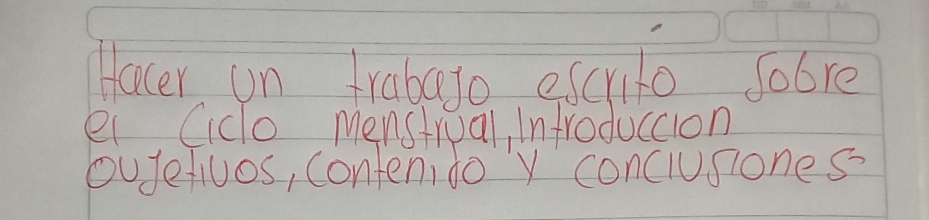 Hacer un trabajo escrito sobre
el Ciclo Menstrual, Introduccion
oujetivos, contenido y conclusiones